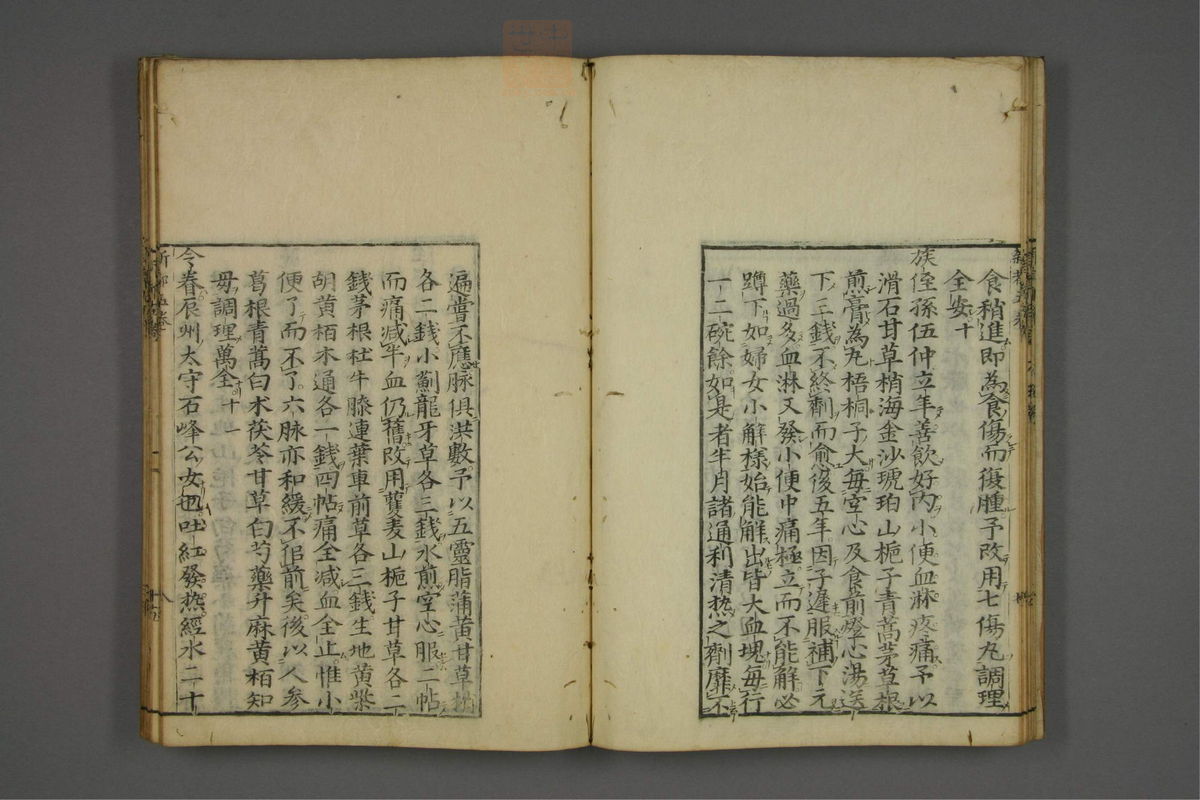 食稍進即為食傷而復腫予改用七傷丸調理
全安十
族侄孫伍仲立年善飲好內小便血淋疼痛予以
滑石甘草梢海金沙琥珀山梔子青蒿茅草根
煎膏為丸梧桐子大每空心及食前燈心湯送
下三錢不終劑而愈後五年因子遲服補下元
藥過多血淋又發小便中痛極立而不能解必
蹲下如婦女小解樣始能解出皆大血塊每行
一二碗餘如是者半月諸通利清热之劑靡不
遍嘗不應脉俱洪數予以五靈脂蒲黄甘草梢
各二錢小薊龍牙草各三錢水煎空心服二帖
而痛减半血仍舊改用瞿麦山梔子甘草各二
錢茅根杜牛膝連葉車前草各三錢生地黄柴
胡黄栢木通各一錢四帖痛全减血全止惟小
便了而不了六脉亦和緩不似前矣後以人参
葛根青蒿白术茯苓甘草白芍藥升麻黄栢知
毋調理萬全十一
今春辰州太守石峰公女也吐紅發热經水二十